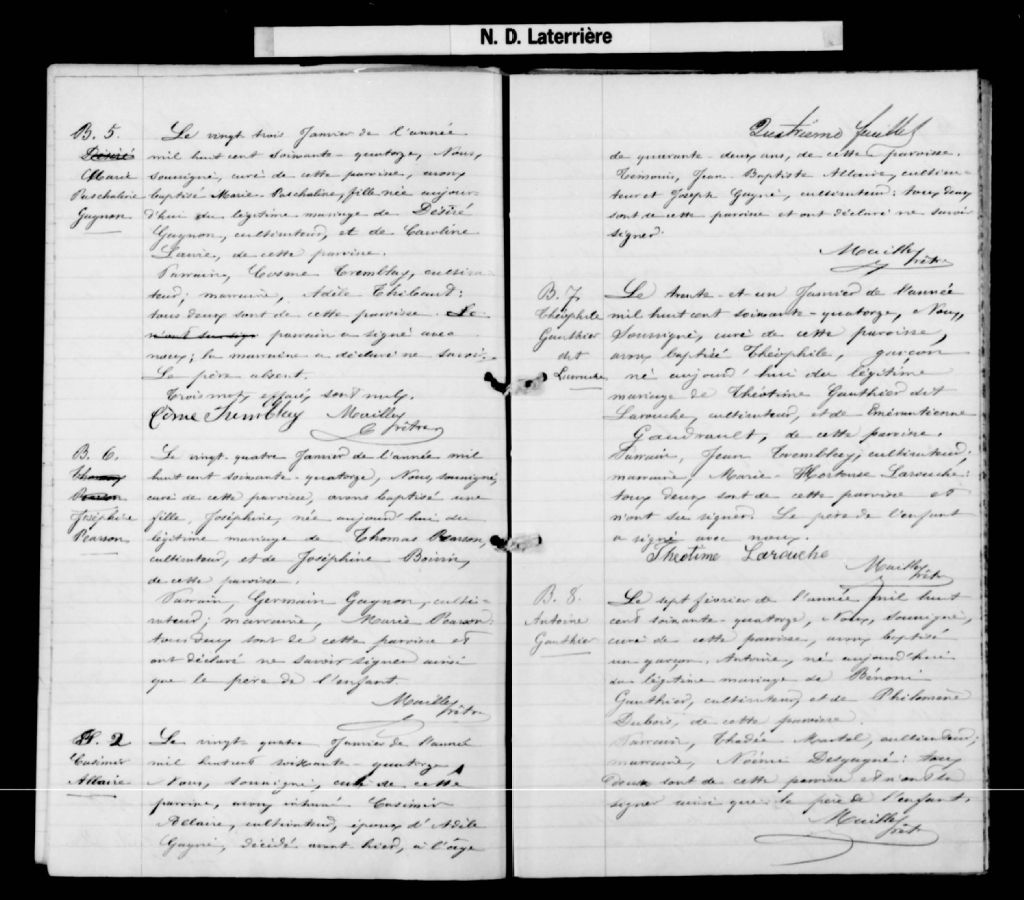 N. D. Laterrière
B. 5.
Désiré
Marie
Paschaline
Gagnon
Le vingt trois Janvier de l'année
mil huit cent soixante-quatorze, Nous,
soussigné, curé de cette paroisse, avons
baptisé Marie-Paschaline, fille née aujour-
d'hui du légitime mariage de Désiré
Gagnon, cultivateur, et de Caroline
de cette paroisse.
Parrain, Cosme Tremblay, cultiva-
teur; marraine, Adèle Thibeault:
tous deux sont de cette paroisse. Le
parrain a signé avec
nous; la marraine a déclaré ne savoir.
Le père absent.
Trois mots effacés sont nuls.
Côme Tremblay Mailley
prêtre
B. 6.
Thomas
Pearson
Joséphine
Pearson
Le vingt-quatre Janvier de l'année mil
huit cent soixante-quatorze, Nous, soussigné,
curé de cette paroisse, avons baptisé une
fille, Joséphine, née aujourd'hui du
légitime mariage de Thomas Pearson,
cultivateur, et de Joséphine Boivin,
de cette paroisse.
Parrain, Germain Gagnon, culti-
vateur; marraine, Marie Pearson:
tous deux sont de cette paroisse et
ont déclaré ne savoir signer ainsi
que le père de l'enfant.
Mailley
prêtre
S. 2
Casimir
Allaire
Le vingt-quatre Janvier de l'année
mil huit cent soixante-quatorze,
Nous, soussigné, curé de cette
paroisse, avons inhumé Casimir
Allaire, cultivateur, époux d'Adèle
Gagné, décédé avant-hier, à l'âge
Quatrième feuillet
de quarante-deux ans, de cette paroisse.
Témoins, Jean-Baptiste Allaire, cultiva-
teur et Joseph Gagné, cultivateur: tous deux
sont de cette paroisse et ont déclaré ne savoir
signer.
Mailley
prêtre
B. 7.
Théophile
Gauthier
dit
Larouche
Le trente-et-un Janvier de l'année
mil huit cent soixante-quatorze, Nous,
Soussigné, curé de cette paroisse,
avons baptisé Théophile, garçon
né aujourd'hui du légitime
mariage de Théotime Gauthier dit
Larouche, cultivateur, et de Emérentienne
Gaudrault, de cette paroisse.
Parrain, Jean Tremblay, cultivateur;
marraine, Marie-Hortense Larouche:
tous deux sont de cette paroisse et
n'ont su signer. Le père de l'enfant
a signé avec nous.
Théotime Larouche
Mailley
prêtre
B. 8.
Antoine
Gauthier
Le sept février de l'année mil huit
cent soixante-quatorze, Nous, soussigné,
curé de cette paroisse, avons baptisé
un garçon, Antoine, né aujourd'hui
du légitime mariage de Bénoni
Gauthier, cultivateur, et de Philomène
Dubois, de cette paroisse.
Parrain, Thadée Martel, cultivateur;
marraine, Noémi Desgagné: tous
deux sont de cette paroisse et n'ont su
signer ainsi que le père de l'enfant.
Mailley
prêtre